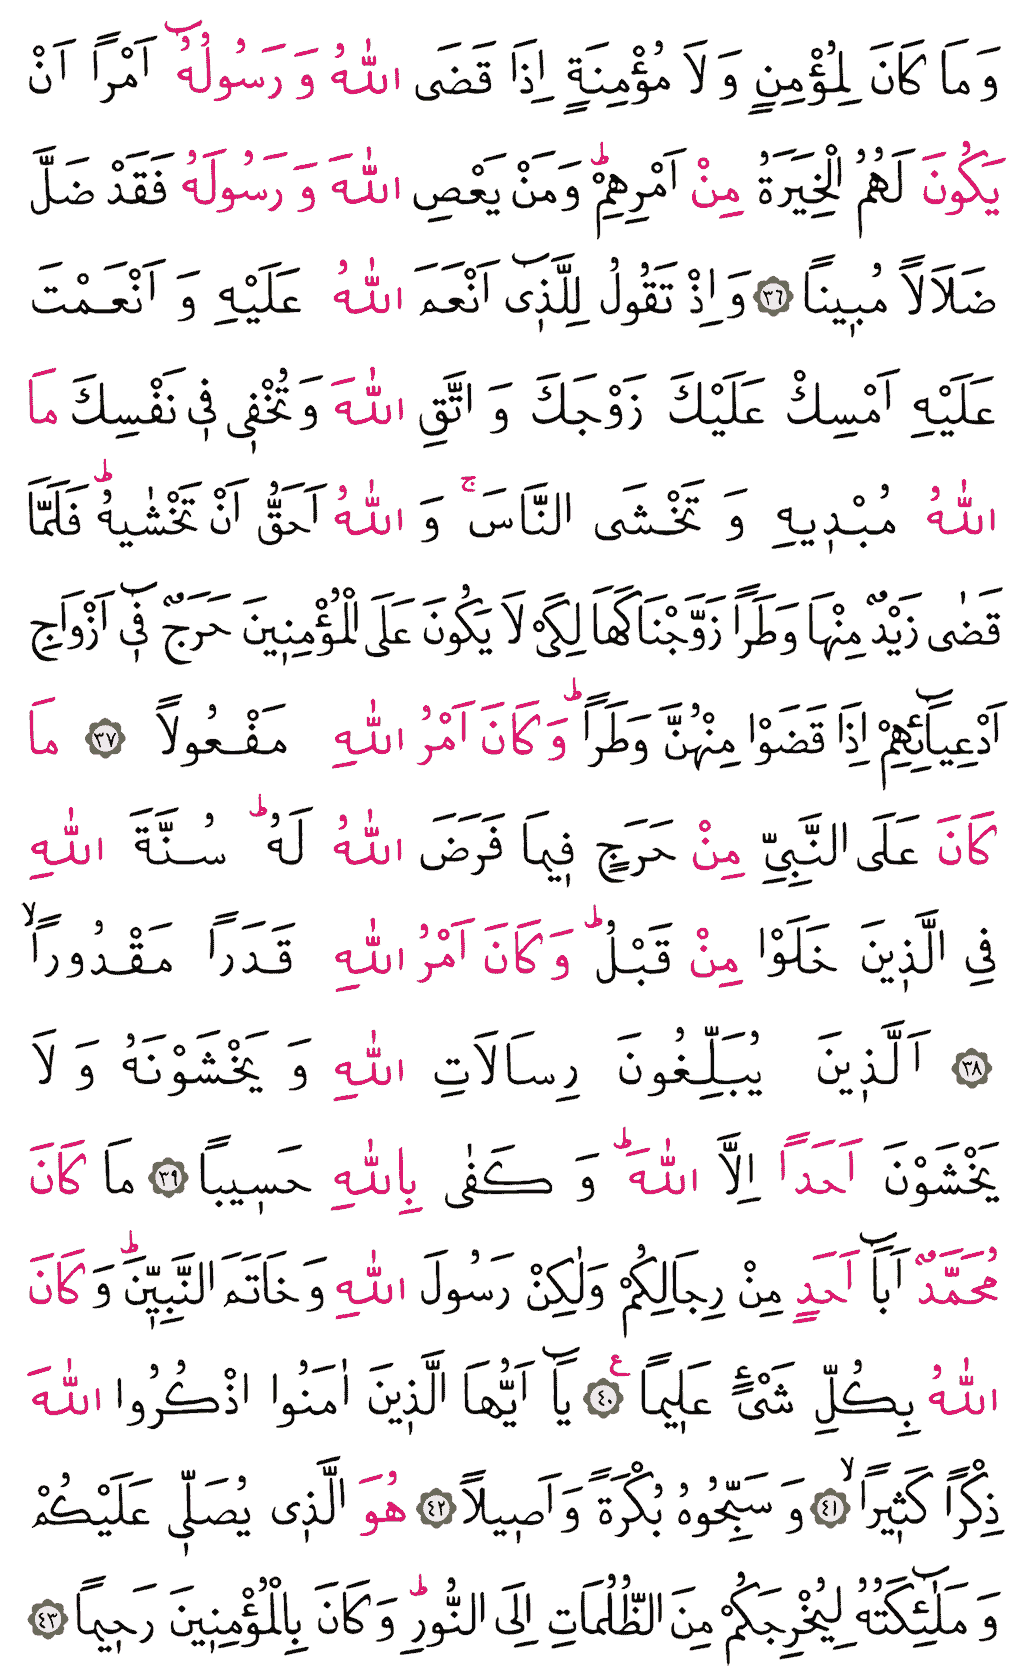 وَ مَا كَانَ لِمُؤْمِنٍ وَ لَا مُؤْمِنَةٍ اِذَا قَضَى اللّٰهُ وَ رَسُولُهُٓ اَمْراً اَنْ
يَكُونَ لَهُمُ الْخِيَرَةُ مِنْ اَمْرِهِمْۜ وَمَنْ يَعْصِ اللّٰهَ وَ رَسُولَهُ فَقَدْ ضَلَّ
ضَلَالاً مُبٖيناً ﴿٣٦﴾ وَ اِذْ تَقُولُ لِلَّذٖٓى اَنْعَمَ اللّٰهُ عَلَيْهِ وَ اَنْعَمْتَ
عَلَيْهِ اَمْسِكْ عَلَيْكَ زَوْجَكَ وَ اتَّقِ اللّٰهَ وَ تُخْفٖى فٖى نَفْسِكَ مَا
اللّٰهُ مُبْدٖيهِ وَ تَخْشَى النَّاسَۚ وَ اللّٰهُ اَحَقُّ اَنْ تَخْشٰيهُۜ فَلَمَّا
قَضٰى زَيْدٌ مِنْهَا وَطَراً زَوَّجْنَاكَهَا لِكَىْ لَا يَكُونَ عَلَى الْمُؤْمِنٖينَ حَرَجٌ فٖٓى اَزْوَاجِ
اَدْعِيَٓائِهِمْ اِذَا قَضَوْا مِنْهُنَّ وَطَراًۜ وَ كَانَ اَمْرُ اللّٰهِ مَفْعُولاً ﴿٣٧﴾ مَا
كَانَ عَلَى النَّبِىِّ مِنْ حَرَجٍ فٖيمَا فَرَضَ اللّٰهُ لَهُۜ سُنَّةَ اللّٰهِ
فِى الَّذٖينَ خَلَوْا مِنْ قَبْلُۜ وَ كَانَ اَمْرُ اللّٰهِ قَدَراً مَقْدُوراًۙ
﴿٣٨﴾ اَلَّذٖينَ يُبَلِّغُونَ رِسَالَاتِ اللّٰهِ وَ يَخْشَوْنَهُ وَ لَا
يَخْشَوْنَ اَحَداً اِلَّا اللّٰهَۜ وَ كَفٰى بِاللّٰهِ حَسٖيباً ﴿٣٩﴾ مَا كَانَ
مُحَمَّدٌ اَبَٓا اَحَدٍ مِنْ رِجَالِكُمْ وَلٰكِنْ رَسُولَ اللّٰهِ وَ خَاتَمَ النَّبِيّٖنَۜ وَ كَانَ
اللّٰهُ بِكُلِّ شَىْءٍ عَلٖيماً ﴿٤٠﴾ ع يَٓا اَيُّهَا الَّذٖينَ اٰمَنُوا اذْكُرُوا اللّٰهَ
ذِكْراً كَثٖيراًۙ ﴿٤١﴾ وَ سَبِّحُوهُ بُكْرَةً وَ اَصٖيلاً ﴿٤٢﴾ هُوَ الَّذٖى يُصَلّٖى عَلَيْكُمْ
وَ مَلٰٓئِكَتُهُ لِيُخْرِجَكُمْ مِنَ الظُّلُمَاتِ اِلَى النُّورِۜ وَ كَانَ بِالْمُؤْمِنٖينَ رَحٖيماً ﴿٤٣﴾